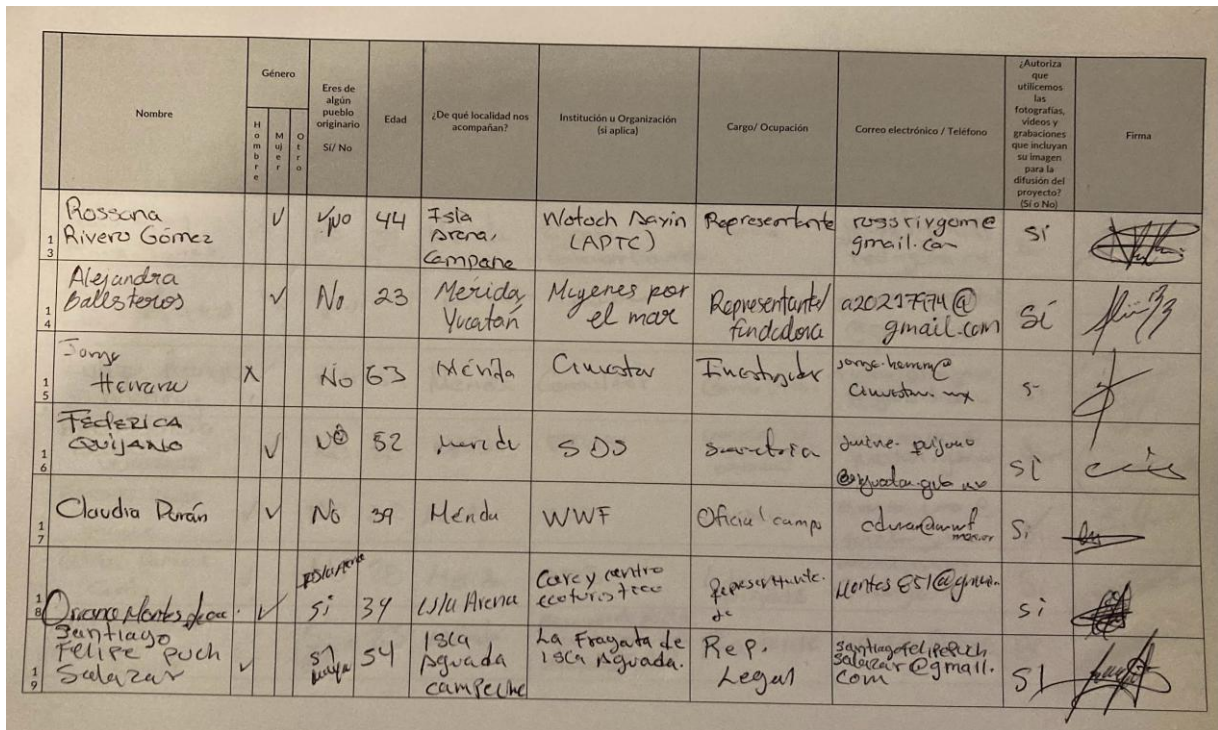 Nombre
Género
Hombre
Mujer
Otro
Eres de
algún
pueblo
originario
Sí/ No
Edad
¿De qué localidad nos
acompañan?
Institución u Organización
(si aplica)
Cargo/ Ocupación
Correo electrónico / Teléfono
¿Autoriza
que
utilicemos
las
fotografías,
videos y
grabaciones
que incluyan
su imagen
para la
difusión del
proyecto?
(Sí o No)
Firma
13
Rossana
Rivero Gómez
No
44
Isla
Arena,
Wotoch Aayin
(APTC)
Representante
rossrivgom@
gmail.com
SI
14
Alejandra
Ballsteros
No
23
Mérida,
Yucatán
Mujeres por
el mar
Representante/
fundadora
a20217974@
gmail.com
Sí
15
Jorge
Herrera
X
No
63
Mérida
Cinvestav
Investigador
jorge.herrera@
cinvestav.mx
16
FEDERICA
QUIJANO
NO
52
Merida
SDS
Secretaria
SI
17
Claudia Durán
No
39
Mérida
WWF
Oficial campo
Si
18
Montes
Si
34
Isla Arena
Carey centro
ecoturistico
Representante.
Si
19
Santiago
Felipe Puch
Salazar
Si
maya
54
Isla
Aguada
campeche
La Fragata de
Isla Aguada.
Rep.
Legal
santiagofelipepuch
salazar@gmail.
com
SI